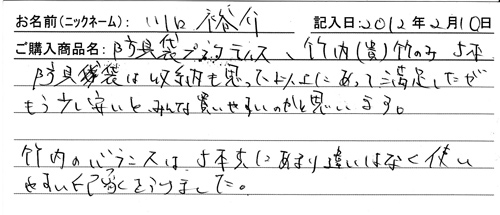 お名前(ニックネーム): 川口 裕介 記入日:2012年2月10日
ご購入商品名:防具袋プラクティス、竹内(貴)竹のみ 5本
防具袋は収納も思った以上にあって満足したが
もう少し安いと、みんな買いやすいのかと思います。
竹内のバランスは、5本共にあまり違いはなく使い
やすい印象をうけました。